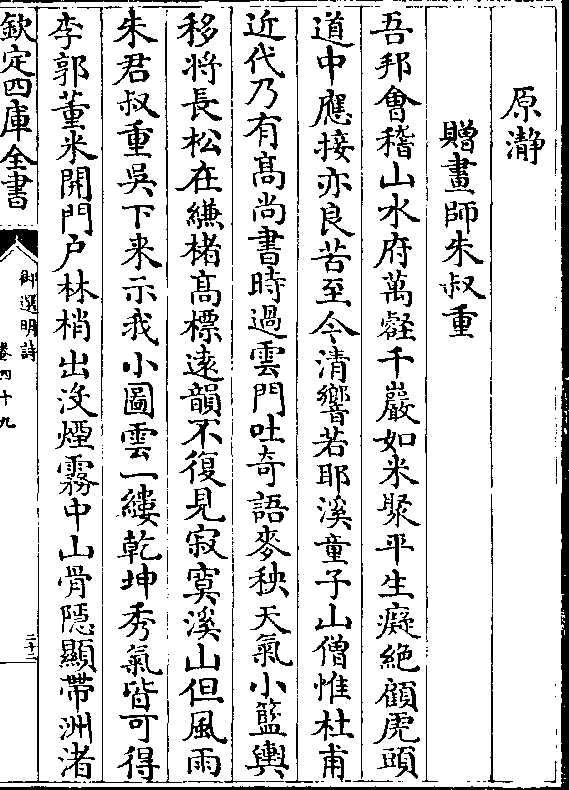 原瀞
贈畫師朱叔重
吾邦會稽山水府萬壑千巖如米聚平生癡絶顧虎頭
道中應接亦良苦至今清響若耶溪童子山僧惟杜甫
近代乃有高尚書時過雲門吐奇語麥秧天氣小籃輿
移將長松在縑楮高標遠韻不復見寂寞溪山但風雨
朱君叔重吳下來示我小圖雲一縷乾坤秀氣皆可得
李郭董米開門戶林梢出没煙霧中山骨隱顯帶洲渚
欽定四庫全書
御選明詩
卷四十九
三十二